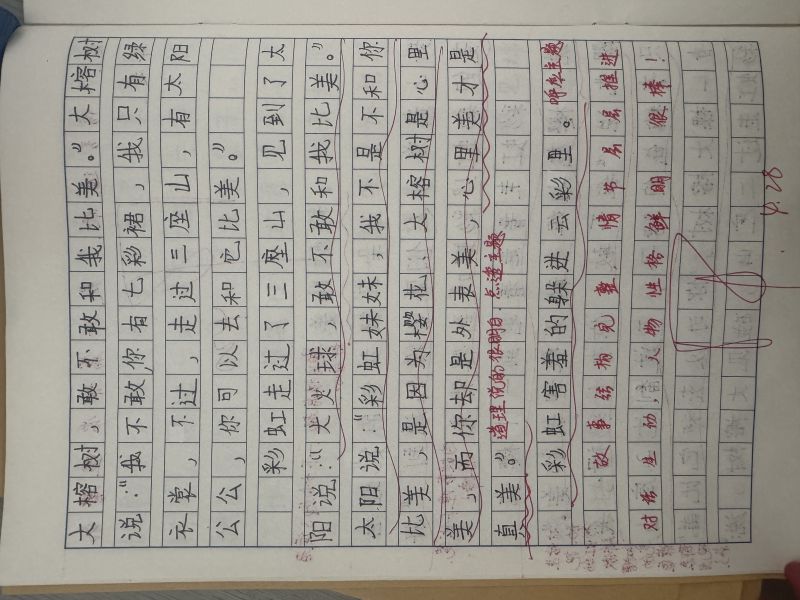 大榕树,敢不敢和我比美。”大榕树
说:“我不敢,你有七彩裙,我只有绿
衣裳,不过,走过三座山,有太阳
公公,你可以去和它比美。”
彩虹走过了三座山,见到了太
阳说:“大火球,敢不敢和我比美。”
太阳说:“彩虹妹妹,我不是不和你
比美,是因为樱花、大榕树是心里
美,而你却是外表美,心里美才是
真美。”
道理说的很明白,点透主题
彩虹害羞的躲进云彩里。
呼应主题
故事结构完整,情节层层推进
对话生动,人物性格鲜明,很棒!
4.28